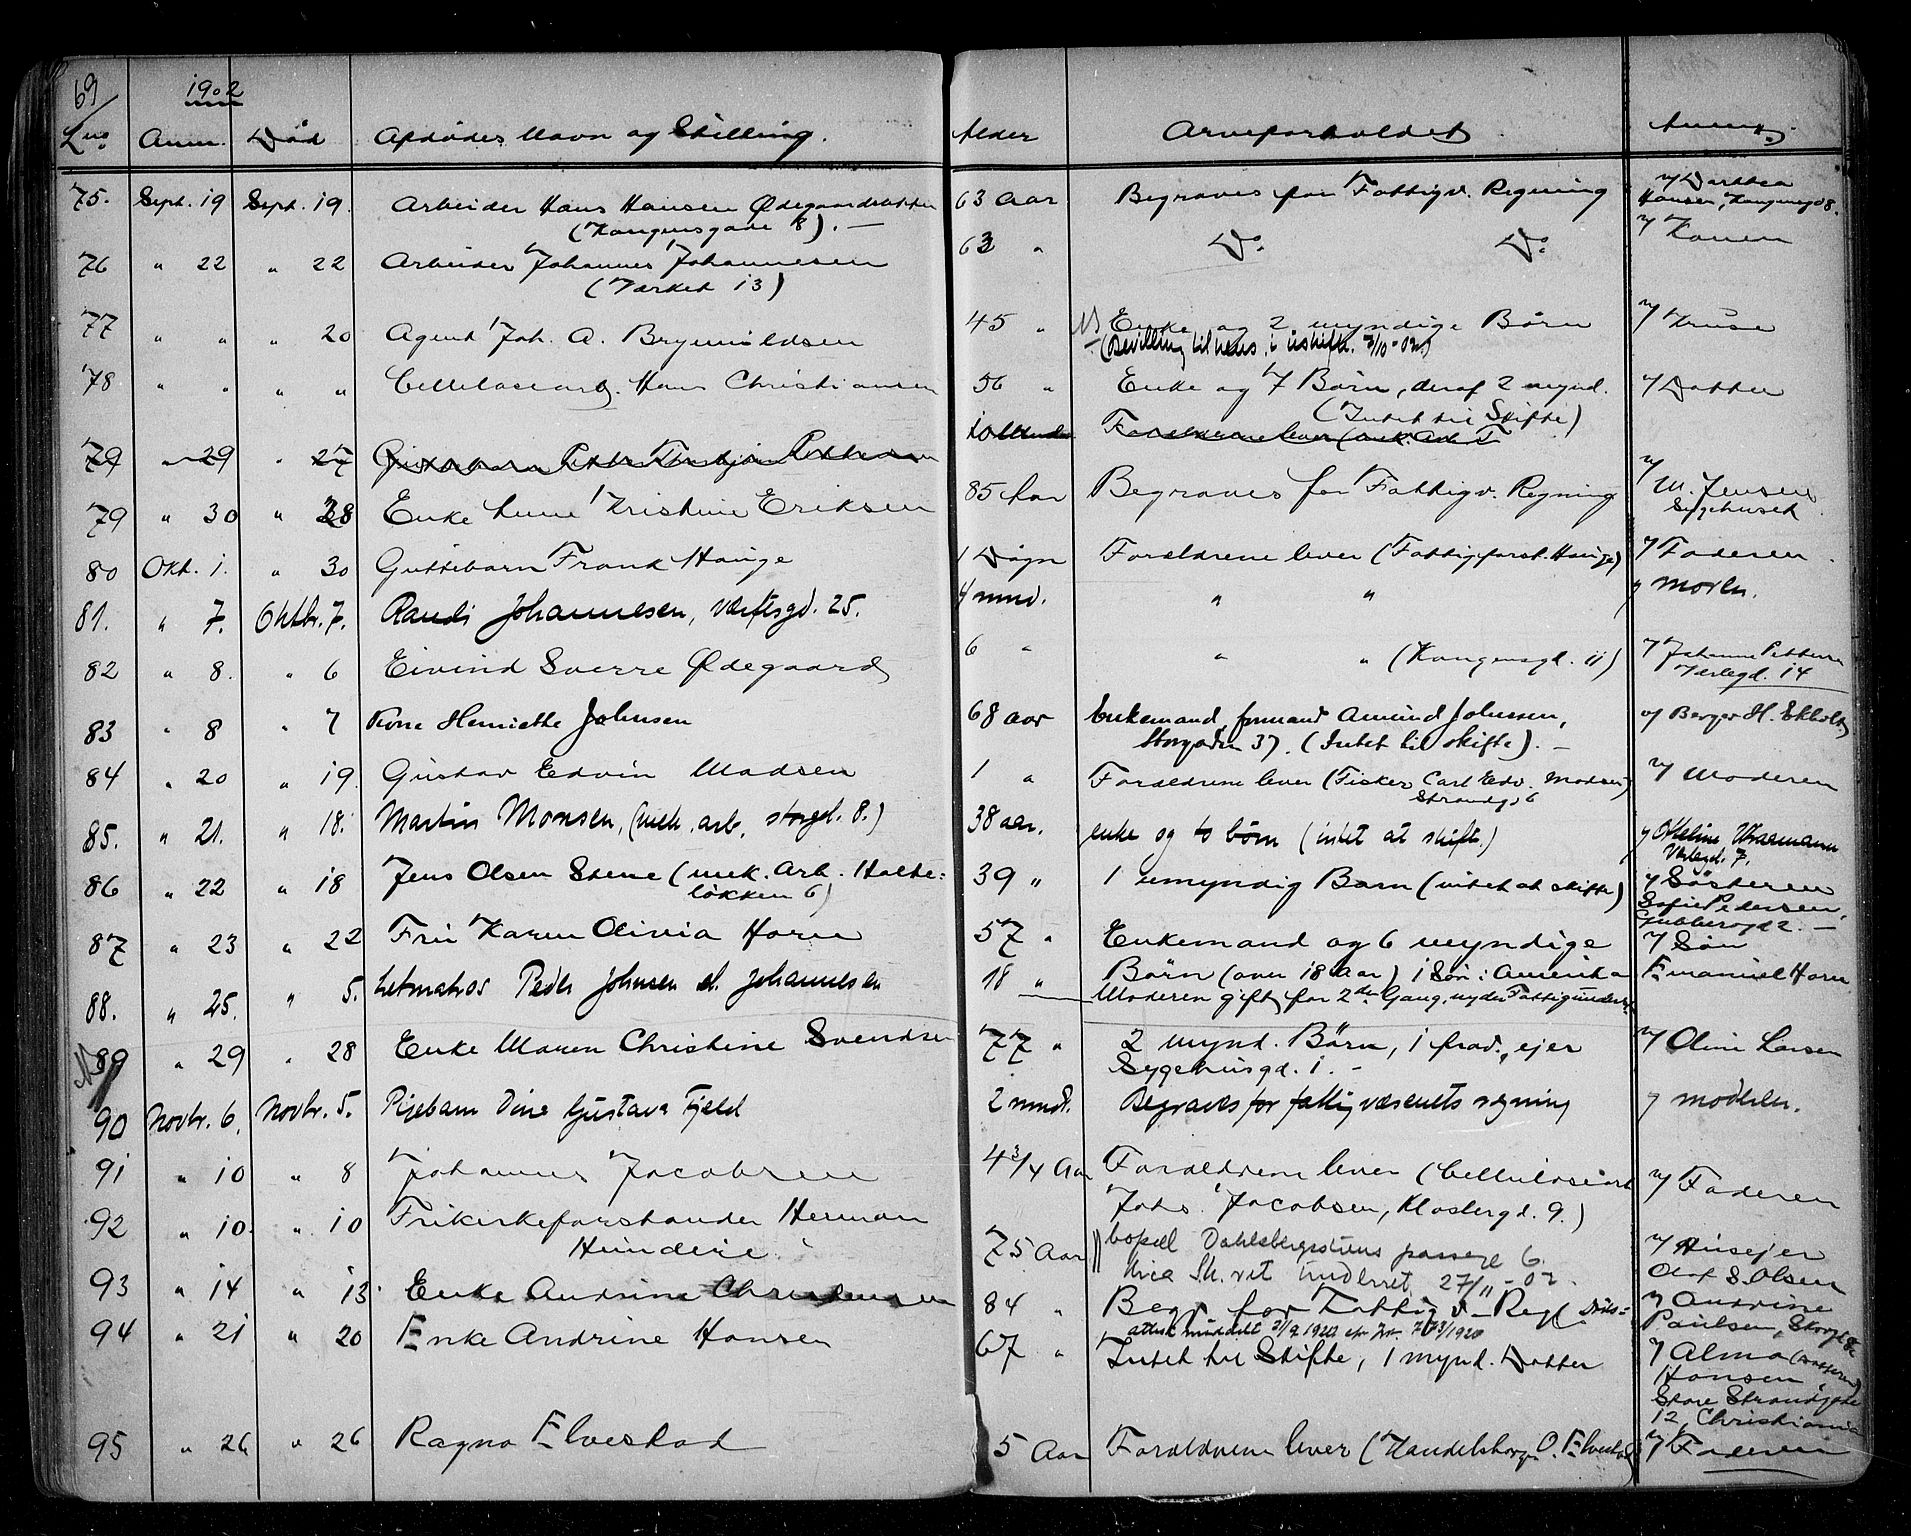 69
1902
Lno Anm. Død Afdødes Navn og Stilling. Alder Arveforholdet Anm.
75. Sept. 19 Sept. 19. Arbeider Hans Hansen Ødegaardsløkken 63 Aar Begraves for Fattigv. Regning v/ Dorthea
(Kongensgade 8). — Hansen, Kongensgd 8.
76 " 22 " 22 Arbeider Johannes Johannesen 63 " Do. Do. v/ Konen
(Værket 13)
77 " " " 20 Agent Joh. A. Brynildsen 45 " Enke og 2 myndige Børn v/ Kruse
(Bevilling til hens. i uskifte. 3/10 - 02.)
78 " " " " Cellulosearb. Hans Christiansen 56 " Enke og 7 Børn, deraf 2 mynd. v/ Datter
(Intet til Skifte)
79 " 29 " 27 Guttebarn 10 Maaneder Forældrene lever
79 " 30 " 28 Enke Lene Kristine Eriksen 85 Aar Begraves for Fattigv. Regning v/ M. Jensen
Sygehuset
80 Okt. 1. " 30 Guttebarn Frank Hauge 1 Døgn Forældrene lever (Fattigforst. Hauge) v/ Faderen
81. " 7. Oktbr. 7. Randi Johannesen, Værftsgd. 25. 4 mnd. " " v/ moren.
82 " 8. " 6 Eivind Sverre Ødegaard 6 " " " (Kongensgd. 11) v/ Johanne Pettersen
Værlegd. 14
83 " 8 " 7 Kone Henriette Johnsen 68 aar Enkemand, formand Amund Johnsen, v/ Berger H. Ekholt
Storgaden 37. (Intet til skifte). —
84 " 20 " 19 Gustav Edvin Madsen 1 " Forældrene lever (Fisker Carl Edv. Madsen) v/ Moderen
Strandgd 6
85. " 21. " 18. Martin Monsen, (mek. arb. storgd. 8.) 38 aar. enke og to børn (intet at skifte.) v/ Otteline Wiarmann
Værlegd. 7.
86 " 22 " 18 Jens Olsen Stene (mek. Arb. Holte= 39 " 1 umyndig Barn (intet at skifte) v/ Søsteren
løkken 6) Sofie Pedersen,
Gubberogd 2. —
87 " 23 " 22 Fru Karen Olivia Horn 57 " Enkemand og 6 myndige v/ Søn
Børn (over 18 Aar) 1 Søn i Amerika Emanuel Horn
88. " 25. " 5. Letmatros Peder Johnsen el. Johannesen 18 " Moderen gift for 2den Gang, nyder Fattigunderst.
89 " 29 " 28 Enke Maren Christine Svendsen 77 " 2 mynd. Børn, 1 frad., ejer v/ Oline Larsen
Sygehusgd. 1. -
90 Novbr. 6. Novbr. 5. Pigebarn Dine Gustava Fjeld 2 mnd. Begraves for fattigvæsenets regning v/ moderen.
91 " 10 " 8 Johannes Jacobsen 4 3/4 Aar Forældrene lever (Cellulosearb. v/ Faderen
Johs. Jacobsen, Klostergd. 9.)
92 " 10. " 10 Frikirkeforstander Herman 75 Aar bopæl Dahlsbergstiens passage 6. v/ Husejer
Hundere. Mrea Sk. ret underret 27/11 - 02. Olaf S. Olsen
93 " 14 " 13. Enke Andrine Christensen 84 " Begr. for Fattigv. Regl. Døds= v/ Andrine
attest meddelt 2/9 1920 efr Jr. 773/1920 Paulsen, Skorgd
94 " 21 " 20 Enke Andrine Hansen 67 " Intet til Skifte, 1 mynd. Datter v/ Alma (Datteren)
Hansen,
Store Strandgade
12, Christiania
95 " 26 " 26 Ragna Elvestad 5 Aar Forældrene lever (Handelsborger O. Elvestad) v/ Faderen